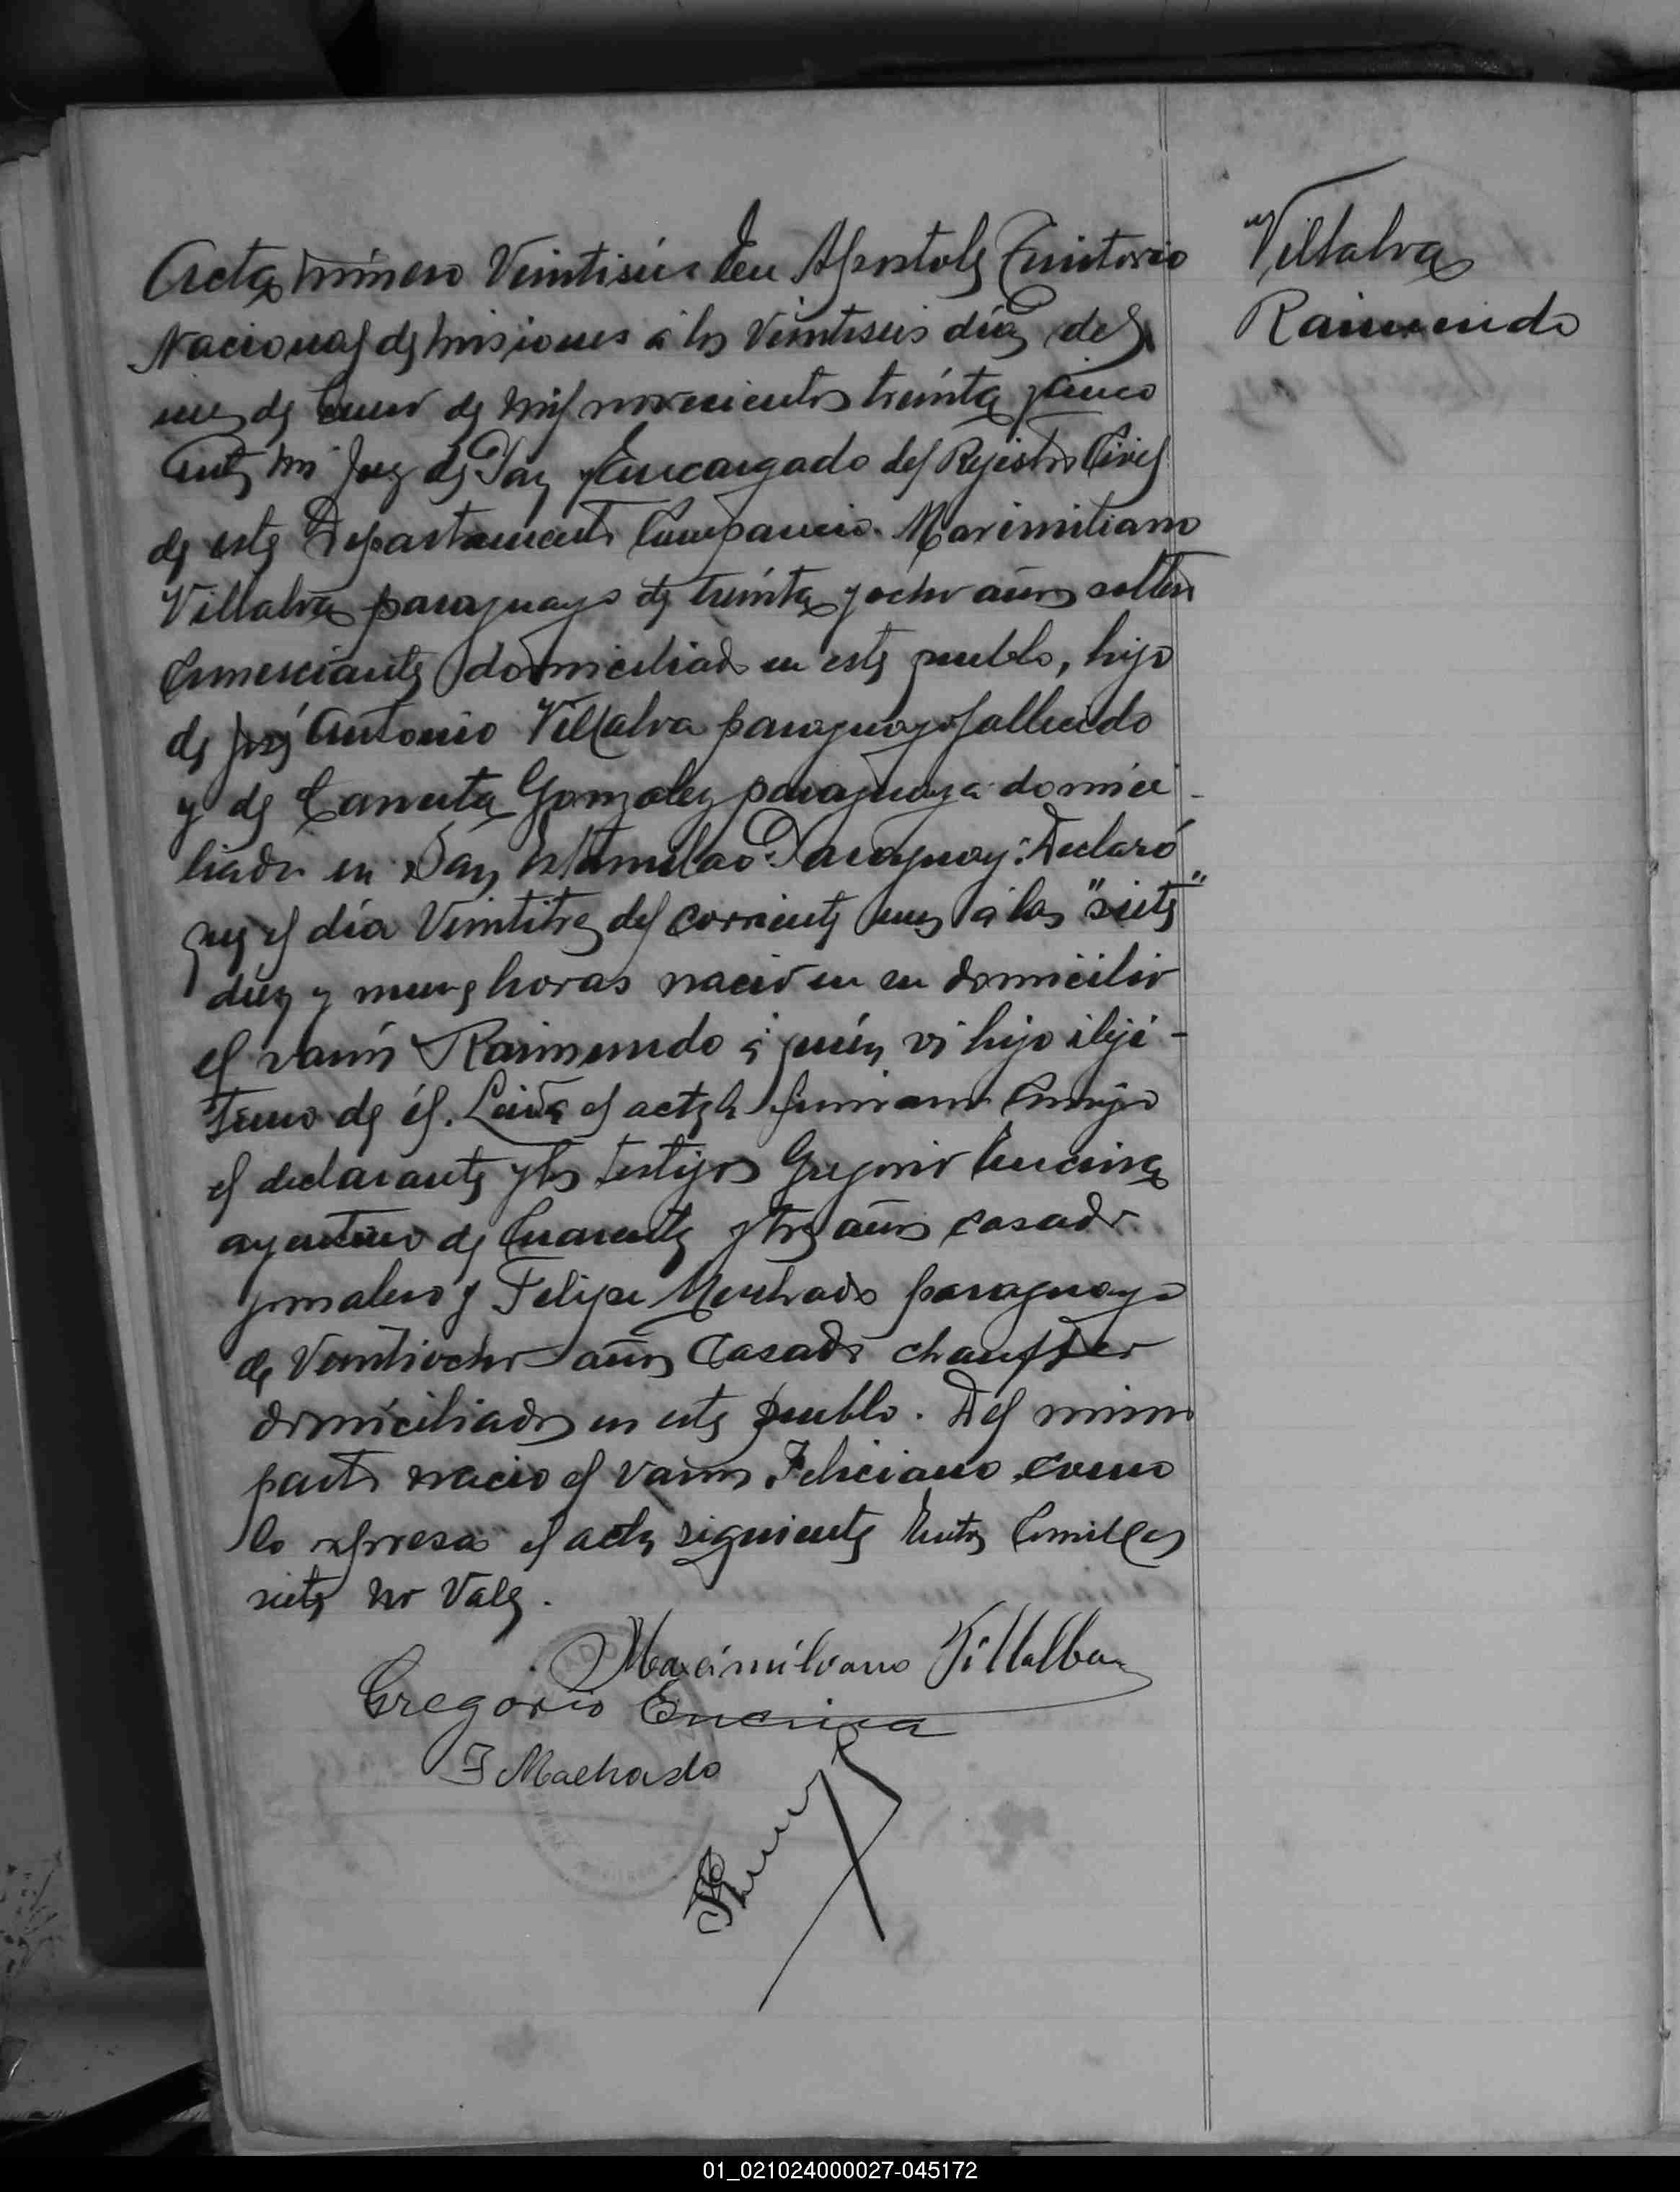 Acta número Veintiseis En Apostoles Territorio
Nacional de Misiones á los Veintiseis días del
mes de Enero de mil novecientos treinta y cinco
Ante mi Juez de Paz y Encargado del Rejistro Civil
de este Departamento Compareció. Maximiliano
Villalva paraguayo de treinta y ocho años soltero
Comerciante domiciliado en este pueblo, hijo
de José Antonio Villalva paraguayo fallecido
y de Gonzalez paraguaya domici
liada en San Estanislao Paraguay: Declaró
que el día Veintitres del corriente mes á las "siete"
diez y nueve horas nació en su domicilio
el varón Raimundo á quién vi hijo iliji-
timo de él. Leida el acta la firmaron Conmigo
el declarante y los testigos Gregorio Encina
argentino de Cuarenta y tres años casado
jornalero y Felipe Machado paraguayo
de Veintiocho años Casado chauffer
domiciliados en este pueblo. Del mismo
parto nació el varón Feliciano como
lo espresa el acta siguiente Entre Comillas
siete no Vale.
Maximiliano Villalba
Gregorio Encina
F Machado
Villalva
Raimundo
01_021024000027-045172